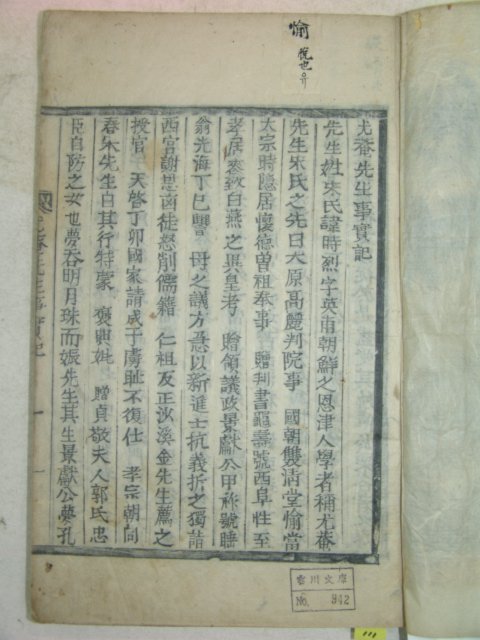 愉 悅也
尤菴先生事實記
先生姓宋氏諱時烈字英甫朝鮮之恩津人學者稱尤菴
先生宋氏之先曰大原高麗判院事 國朝雙淸堂愉當
太宗時隱居懷德曾祖奉事 贈判書龜壽號西阜性至
孝居 致白燕之異皇考 贈領議政景獻公甲祚號睡
翁光海丁巳讐 母之議方急以新進士抗義折之獨詣
西宮謝恩凶徒 削儒籍 仁祖反正沙溪金先生薦之
授官 天啓丁卯國家請成于虜恥不復仕 孝宗朝同
春宋先生白其行特蒙 褒典妣 贈貞敬夫人郭氏忠
臣自防之女也夢呑明月珠而娠先生其生景獻公夢孔
先生事實記 一
文庫
No. 942